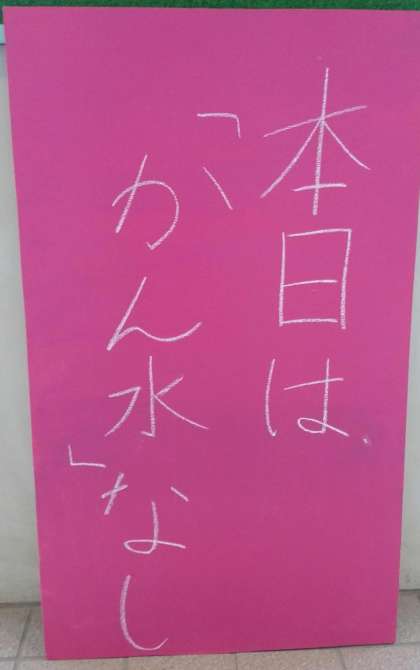 本日は
「かん水」なし